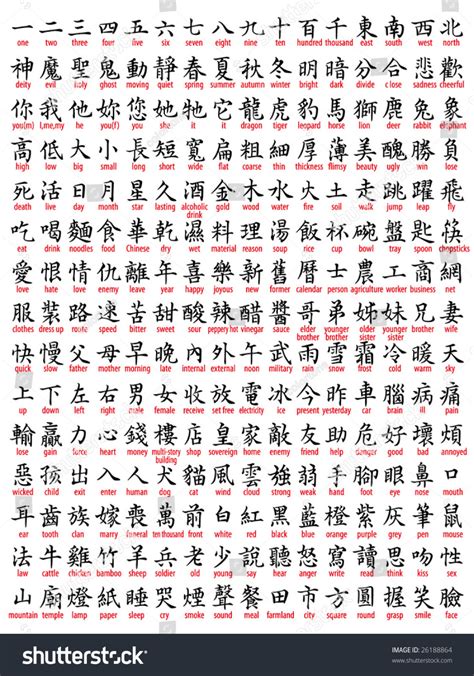 一 二 三 四 五 六 七 八 九 十 百 千 東 南 西 北
one two three four five six seven eight nine ten hundred thousand east south west north
神 魔 聖 鬼 動 靜 春 夏 秋 冬 明 暗 分 合 悲 歡
deity evil holy ghost moving quiet spring summer autumn winter bright dark divide close sadness cheerful
你 我 他 她 您 她 牠 它 龍 虎 豹 馬 獅 鹿 兔 象
you(m) I,me,my he you(f) you she it it dragon tiger leopard horse lion deer rabbit elephant
高 低 大 小 長 短 寬 扁 粗 細 厚 薄 美 醜 勝 負
high low big small long short wide flat coarse thin thick flimsy beauty ugly win lose
死 活 日 月 星 久 酒 金 木 水 火 土 走 跳 躍 飛
death live day month star lasting alcoholic drink gold wood water fire soil walk jump leap fly
吃 喝 麵 食 華 乾 濕 料 理 湯 飯 杯 碗 盤 匙 筷
eat drink noodles food Chinese dry wet material reason soup rice cup bowl tray spoon chopsticks
愛 恨 情 仇 離 年 喜 樂 新 舊 曆 士 農 工 商 網
love hate love enemy leave year happy joyful new former calendar person agriculture worker business net
服 裝 路 速 苦 甜 酸 辣 醋 醬 哥 弟 姊 妹 兄 妻
clothes dress up route speed bitter sweet sour peppery hot vinegar sauce elder brother younger brother elder sister younger sister elder brother wife
快 慢 父 母 早 晚 內 外 午 武 雨 雪 霜 冷 暖 天
quick slow father mother morning late internal external noon military rain snow frost cold warm sky
上 下 左 右 男 女 收 放 電 冰 今 昨 車 腦 病 痛
up down left right male female receive set free electricity ice present yesterday car brain ill pain
輸 贏 力 心 錢 樓 店 皇 家 敵 友 助 危 好 壞 煩
lose gain force heart money multi-story building shop sovereign home enemy friend help danger good bad annoyed
惡 孩 出 入 人 犬 貓 風 雲 強 弱 手 腳 眼 鼻 口
wicked child exit enter human dog cat wind cloud strong weak hand foot eye nose mouth
耳 齒 族 嫁 喪 萬 前 白 紅 黑 藍 橙 紫 灰 筆 鼠
ear tooth clan marry funeral ten thousand front white red black blue orange purple grey pen mouse
法 牛 雞 竹 羊 兵 老 少 說 聽 怒 寫 讀 思 吻 性
law cattle chicken bamboo sheep soldier old young say hear anger write read think kiss sex
山 廟 燈 紙 睡 哭 聲 粉 餐 田 市 方 圓 握 笑 臉
mountain temple lamp paper sleep cry sound meal farmland city square round grasp smile face
shutterstock
IMAGE ID: 26188864
www.shutterstock.com